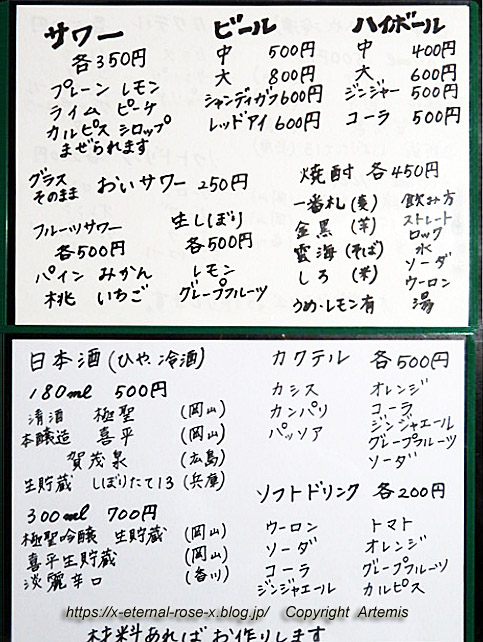 サワー
各350円
プレーン レモン
ライム ピーチ
カルピス シロップ
まぜられます
グラス
そのまま おいサワー 250円
フルーツサワー
各500円
パイン みかん
桃 いちご
生しぼり
各500円
レモン
グレープフルーツ
ビール
中 500円
大 800円
シャンディガフ 600円
レッドアイ 600円
ハイボール
中 400円
大 600円
ジンジャー 500円
コーラ 500円
焼酎 各450円
一番札(麦)
金黒(芋)
雲海(そば)
しろ(米)
うめ・レモン有
飲み方
ストレート
ロック
水
ソーダ
ウーロン
湯
日本酒(ひや、冷酒)
180ml 500円
清酒 極聖 (岡山)
本醸造 喜平 (岡山)
賀茂泉 (広島)
生貯蔵 しぼりたて13 (兵庫)
300ml 700円
極聖吟醸 生貯蔵 (岡山)
喜平生貯蔵 (岡山)
淡麗辛口 (香川)
カクテル 各500円
カシス
カンパリ
パッソア
オレンジ
コーラ
ジンジャエール
グレープフルーツ
ソーダ
ソフトドリンク 各200円
ウーロン
ソーダ
コーラ
ジンジャエール
トマト
オレンジ
グレープフルーツ
カルピス
https://x-eternal-rose-x.blog.jp/ Copyright Artemis
材料あればお作りします